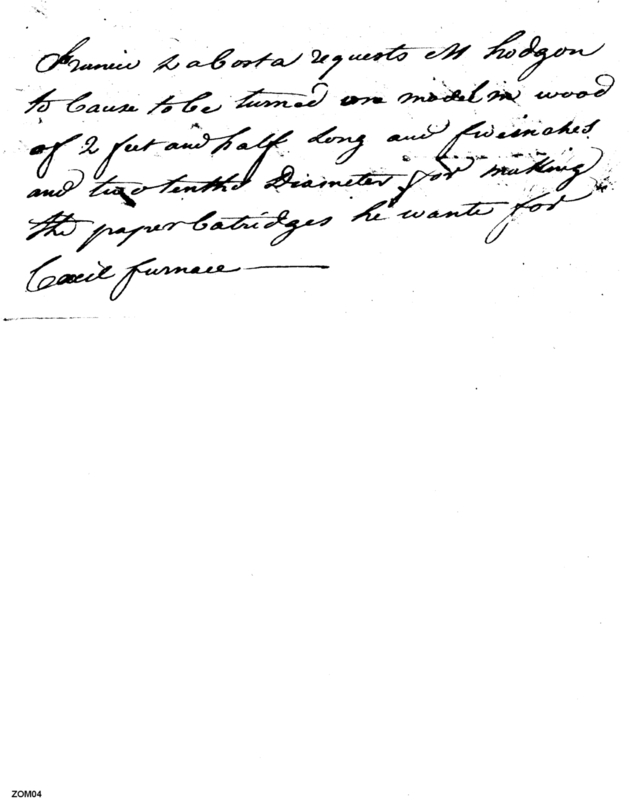 Francis Dacosta requests M hodgon
to Cause to be turned one model in wood
of 2 feet and half Long and five inches
and two tenths Diameter for making
the paper Catridges he wants for
Cecil furnace
ZOM04